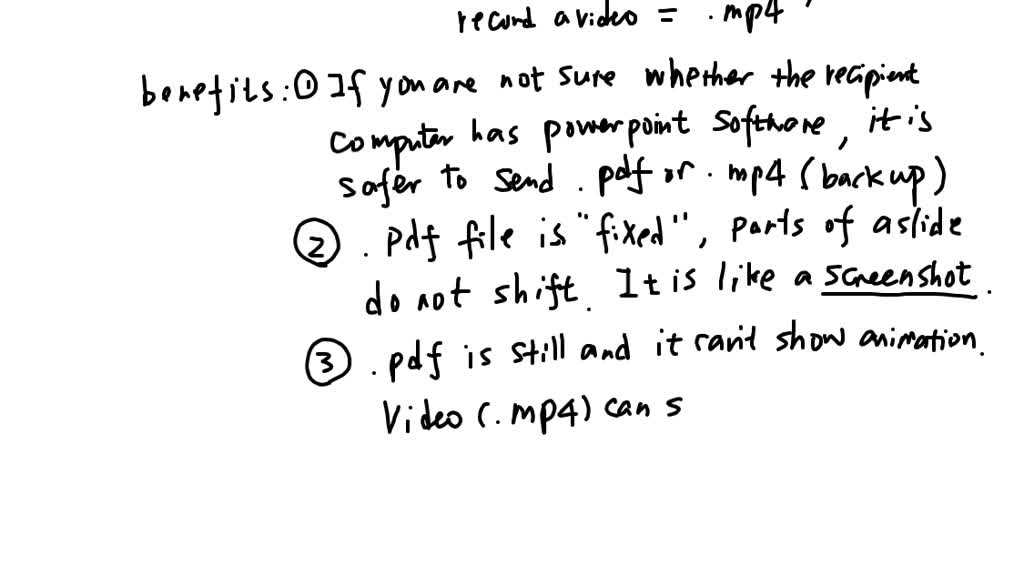 record a video = .mp4
benefits: ① If you are not sure whether the recipient
computer has powerpoint software, it is
safer to send .pdf or .mp4 (backup)
② .pdf file is "fixed", parts of a slide
do not shift. It is like a screenshot.
③ .pdf is still and it can't show animation.
Video (.mp4) can s